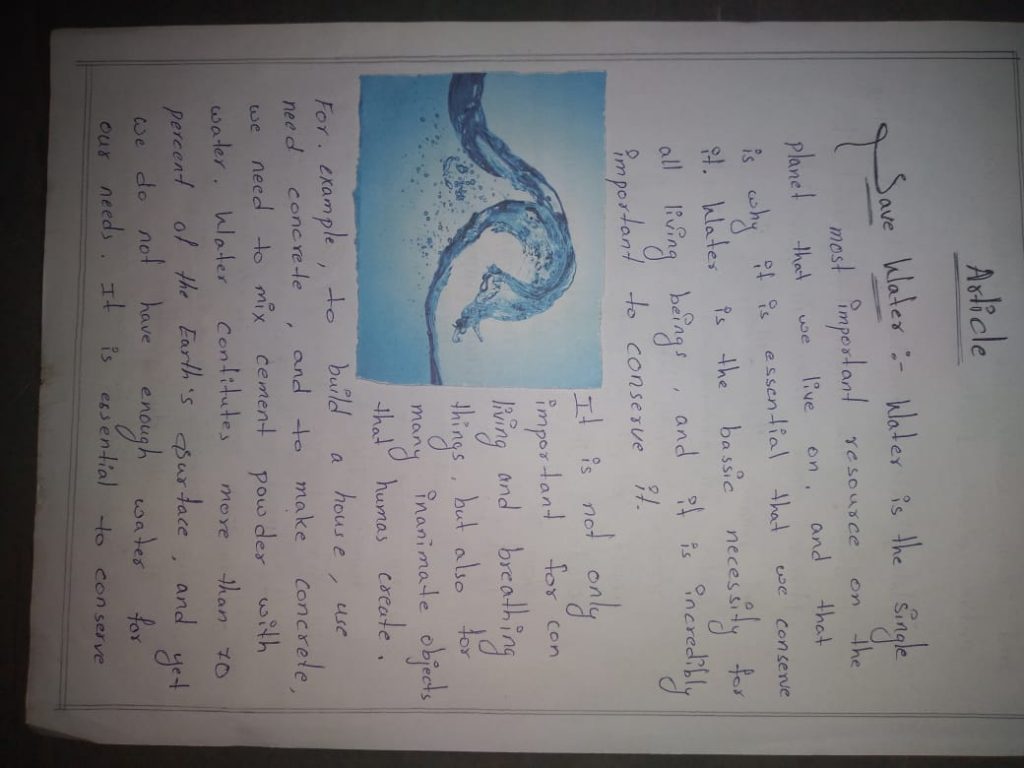 Article
Save Water :- Water is the single
most important resource on the
planet that we live on. and that
is why it is essential that we conserve
it. Water is the bassic necessity for
all living beings, and it is incredibly
important to conserve it.
It is not only
important for con
living and breathing
things, but also for
many inanimate objects
that humas create.
For. example, to build a house, use
need concrete, and to make concrete,
we need to mix cement powder with
water. Water contitutes more than 70
percent of the Earth's surface, and yet
we do not have enough water for
our needs. It is essential to conserve